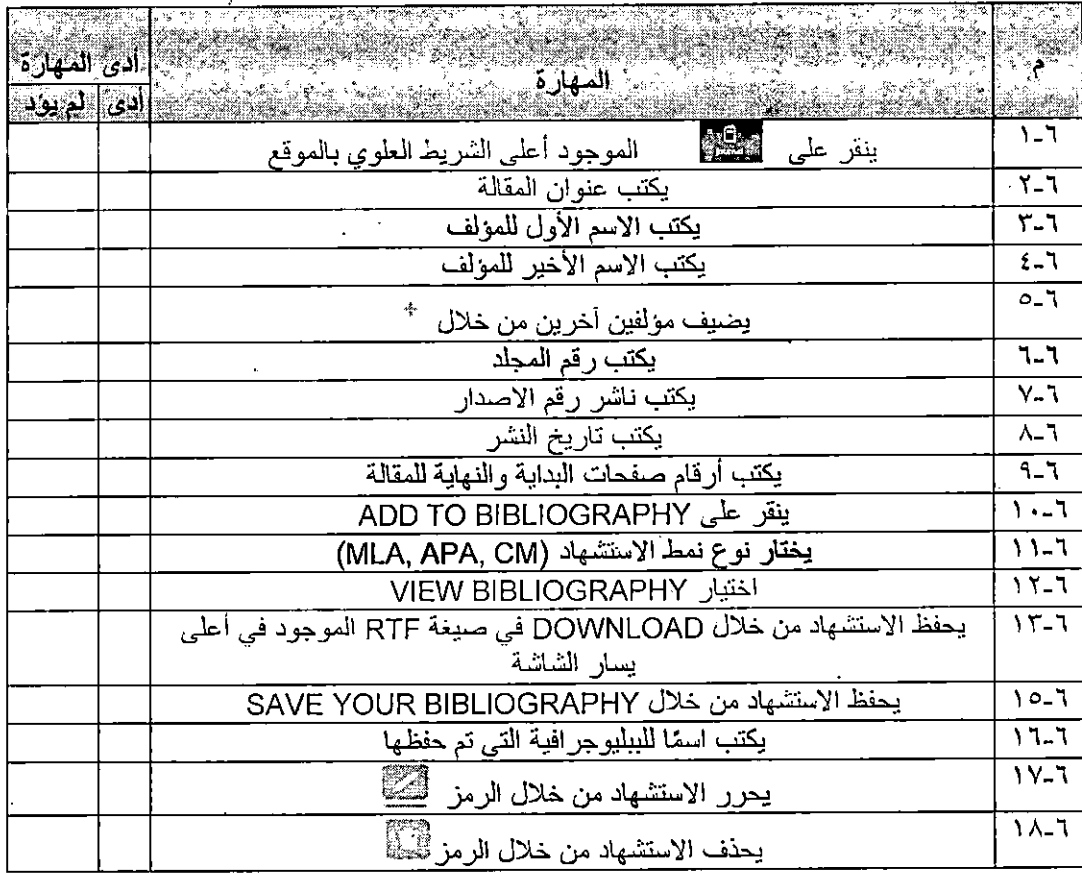 م المهارة أدى المهارة
أدى لم يؤد
٦-١ ينقر على الموجود أعلى الشريط العلوي بالموقع
٦-٢ يكتب عنوان المقالة
٦-٣ يكتب الاسم الأول للمؤلف
٦-٤ يكتب الاسم الأخير للمؤلف
٦-٥ يضيف مؤلفين آخرين من خلال +
٦-٦ يكتب رقم المجلد
٦-٧ يكتب ناشر رقم الاصدار
٦-٨ يكتب تاريخ النشر
٦-٩ يكتب أرقام صفحات البداية والنهاية للمقالة
٦-١٠ ينقر على ADD TO BIBLIOGRAPHY
٦-١١ يختار نوع نمط الاستشهاد (MLA, APA, CM)
٦-١٢ اختيار VIEW BIBLIOGRAPHY
٦-١٣ يحفظ الاستشهاد من خلال DOWNLOAD في صيغة RTF الموجود في أعلى
يسار الشاشة
٦-١٥ يحفظ الاستشهاد من خلال SAVE YOUR BIBLIOGRAPHY
٦-١٦ يكتب اسمًا للببليوجرافية التي تم حفظها
٦-١٧ يحرر الاستشهاد من خلال الرمز
٦-١٨ يحذف الاستشهاد من خلال الرمز